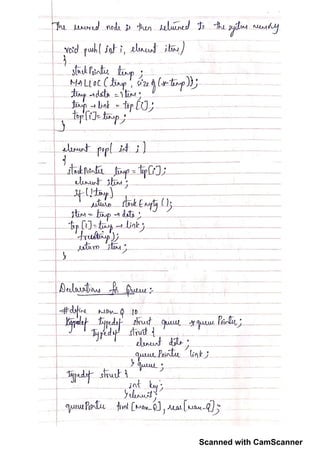 The removed node is then returned to the system memory
void push( int i, element item)
{
stackPointer temp ;
MALLOC ( temp , size of (*temp));
temp → data = item;
temp → link = top[i];
top[i]= temp;
}
element pop( int i )
{
stackPointer temp = top[i];
element item;
if (!temp)
return stackEmpty ();
item = temp → data ;
top[i]= temp → link ;
free(temp);
return item;
}
Declarations for Queue:-
#define MAX_Q 10
typedef struct queue *queuePointer;
Typedef struct {
element data;
queuePointer link ;
} queue ;
Typedef struct {
int key;
}element;
queuePointer front [MAX_Q], rear[MAX_Q];
Scanned with CamScanner